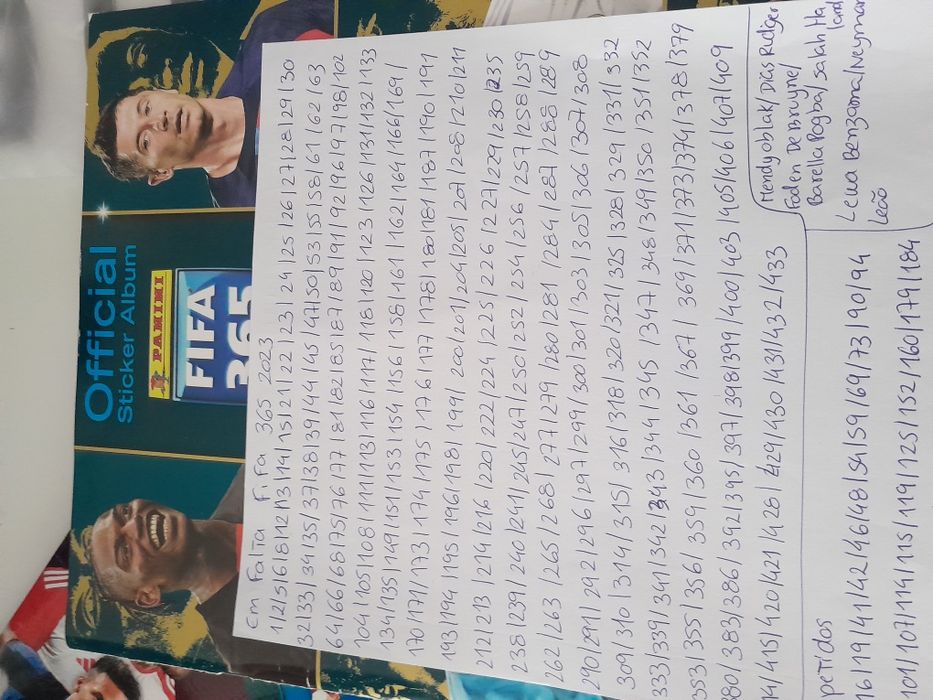 Official
Sticker Album
PANINI
FIFA
365
Em Falta Fifa 365 2023
1/2/5/6/8/12/13/14/15/21/22/23/24/25/26/27/28/29/30
32/33/34/35/37/38/39/44/45/47/50/53/55/58/61/62/63
64/66/68/75/76/77/81/82/85/87/89/91/92/96/97/98/102
104/105/108/111/113/116/117/118/120/123/126/131/132/133
134/135/149/151/153/154/156/158/161/162/164/166/169/
170/171/173/174/175/176/177/178/180/181/187/190/191
193/194/195/196/198/199/200/201/204/205/207/208/210/211
212/213/214/216/220/222/224/225/226/227/229/230/235
238/239/240/241/245/247/250/252/254/256/257/258/259
262/263/265/268/277/279/280/281/284/287/288/289
290/291/292/296/297/299/300/301/303/305/306/307/308
309/310/314/315/316/318/320/321/325/328/329/331/332
333/339/341/342/343/344/345/347/348/349/350/351/352
353/355/356/359/360/361/367/369/371/373/374/378/379
380/383/386/392/395/397/398/399/400/403/405/406/407/409
/415/420/421/428/429/430/431/432/433
Mendy Oblak/Dias Rudger
Foden De Bruyne/
Barella Pogba/Salah Ha
land
Lewa Benzama/Neymar
Leão
petidos
16/19/41/42/46/48/54/59/69/73/90/94
101/107/114/115/119/125/152/160/179/184